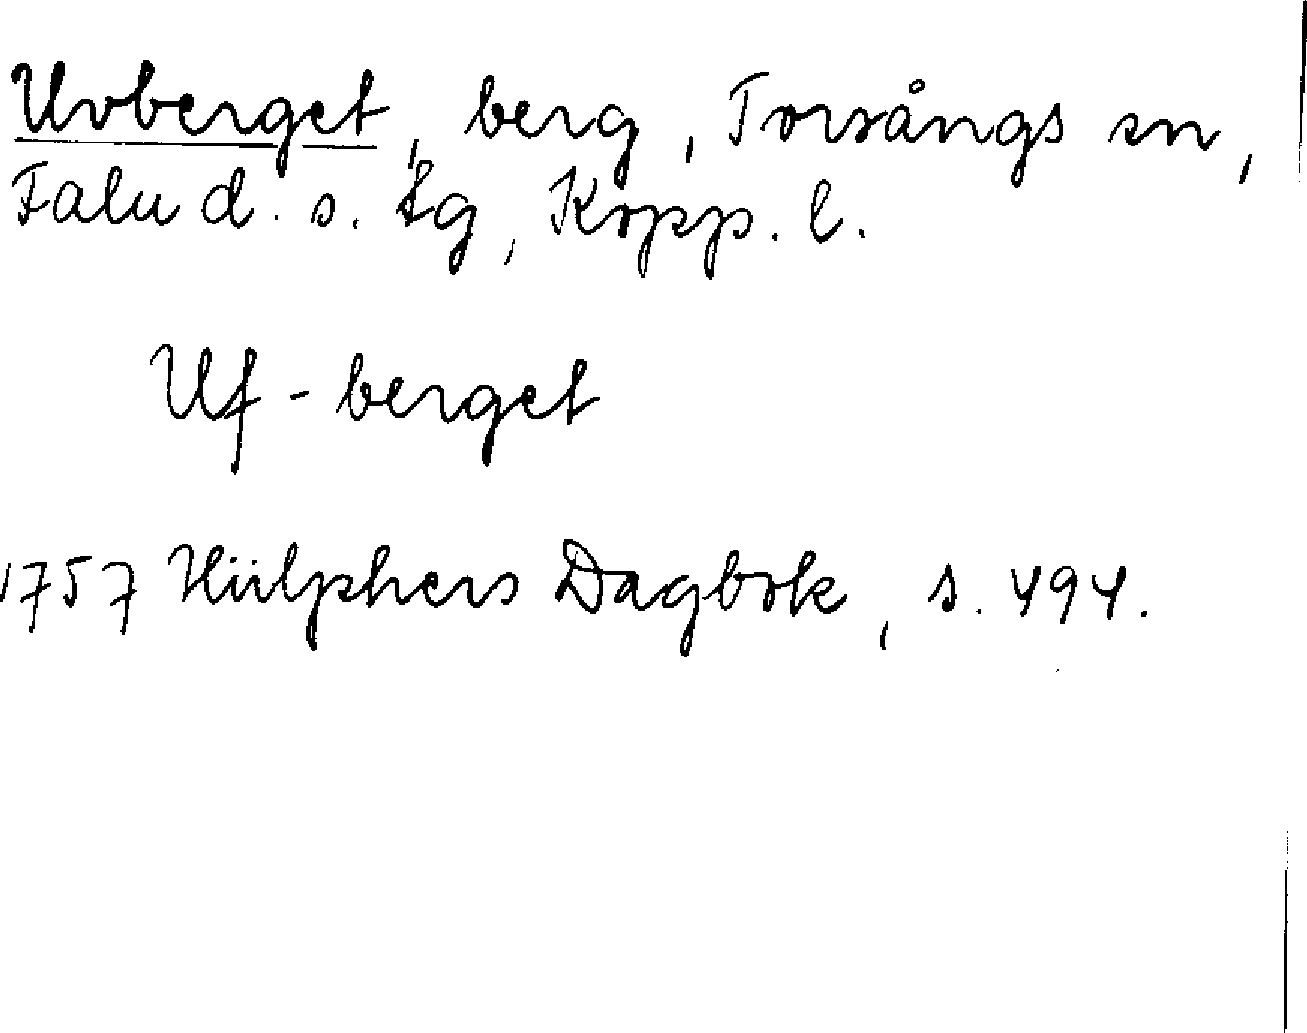 Uvberget, berg, Torsångs sn,
Falu d. s. tg, Kopp. l.
Uf-berget
1757 Hülphers Dagbok, s. 494.